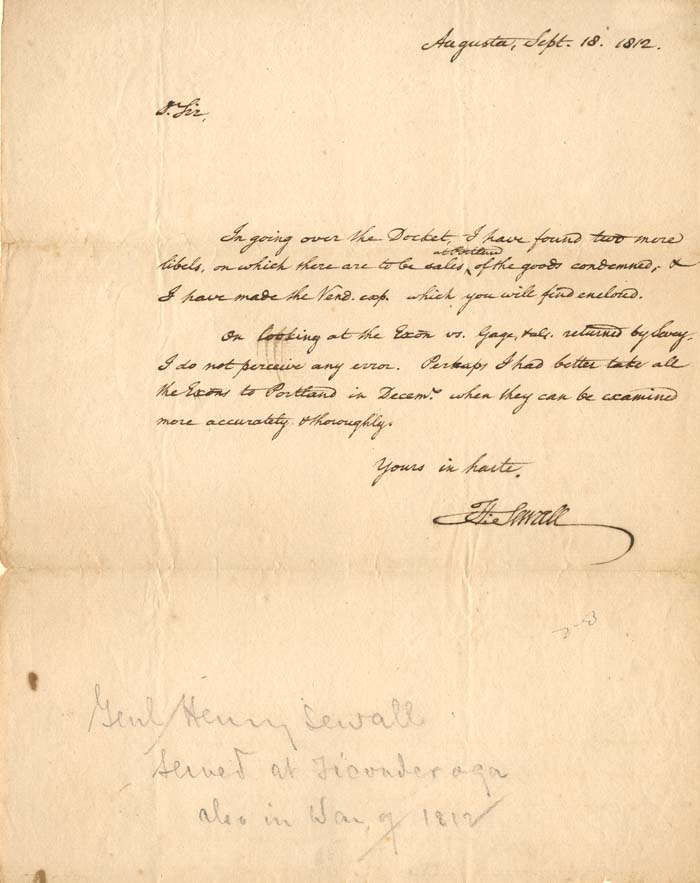 Augusta, Sept. 18. 1812.
Dr. Sir,
In going over the Docket, I have found two more
at Portland
libels, on which there are to be sales, of the goods condemned, &
I have made the Vend. exp. which you will find enclosed.
On looking at the Exon vs. Gage, & als. returned by Sevey,
I do not perceive any error. Perhaps I had better take all
the Exons to Portland in Decemr. when they can be examined
more accurately & thoroughly.
Yours in haste.
H: Sewall
Genl Henry Sewall
served at Ticonderoga
also in War of 1812